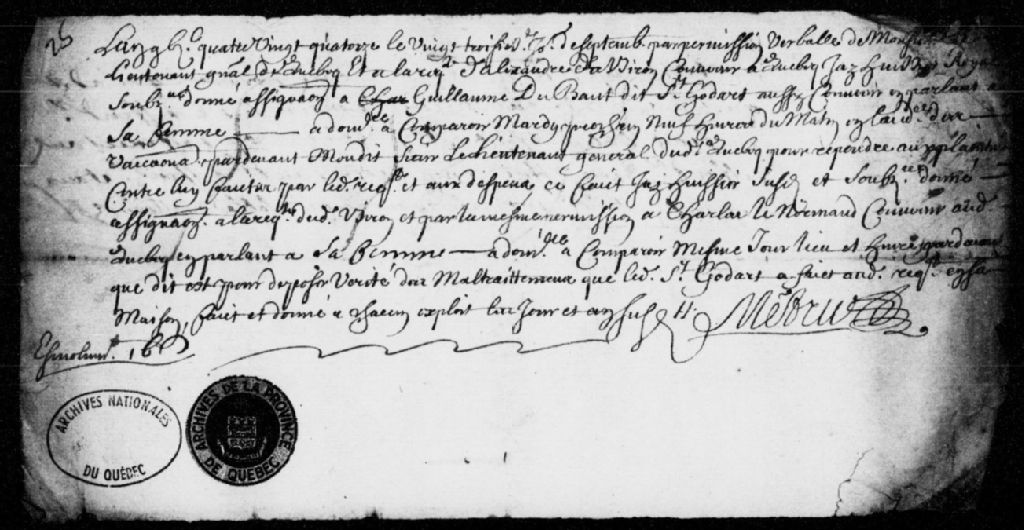 26
Lan gbic quatre vingt quatorze le vingt troisie Jr. de septemb. par permission verballe de Monsr
Lieutenant gnal de quebq Et a la reqte d'alixandre Viron Couvreur a quebq Jay huissier Royal
soubz. donné assignaon. a Guillaume Du Baut dit St Godart aussy Couvreur en parlant a
sa femme a domle a Comparoir Mardy prochain Neuf heures du Matin
pardevant Mondit sieur Le lieutenant general dud. quebq pour repondre
Contre luy faictes par led. reqt. et aux despens ce fait Jay huissier susd. et soubz. donné
assignaon. a la reqte dud. Viron et par la mesme permission a Charles le Normand Couvreur aud
quebq en parlant a sa femme a domle a Comparoir Mesme Jour lieu et heure pardevant
que dit est pour deposer Verité des Maltraittemens que led. St Godart a faict aud. reqt. en sa
Maison, faict et donné a chacun exploit les Jour et an susd.
Esmolum. 16s
ARCHIVES NATIONALES
DU QUÉBEC
ARCHIVES DE LA PROVINCE
DE QUEBEC